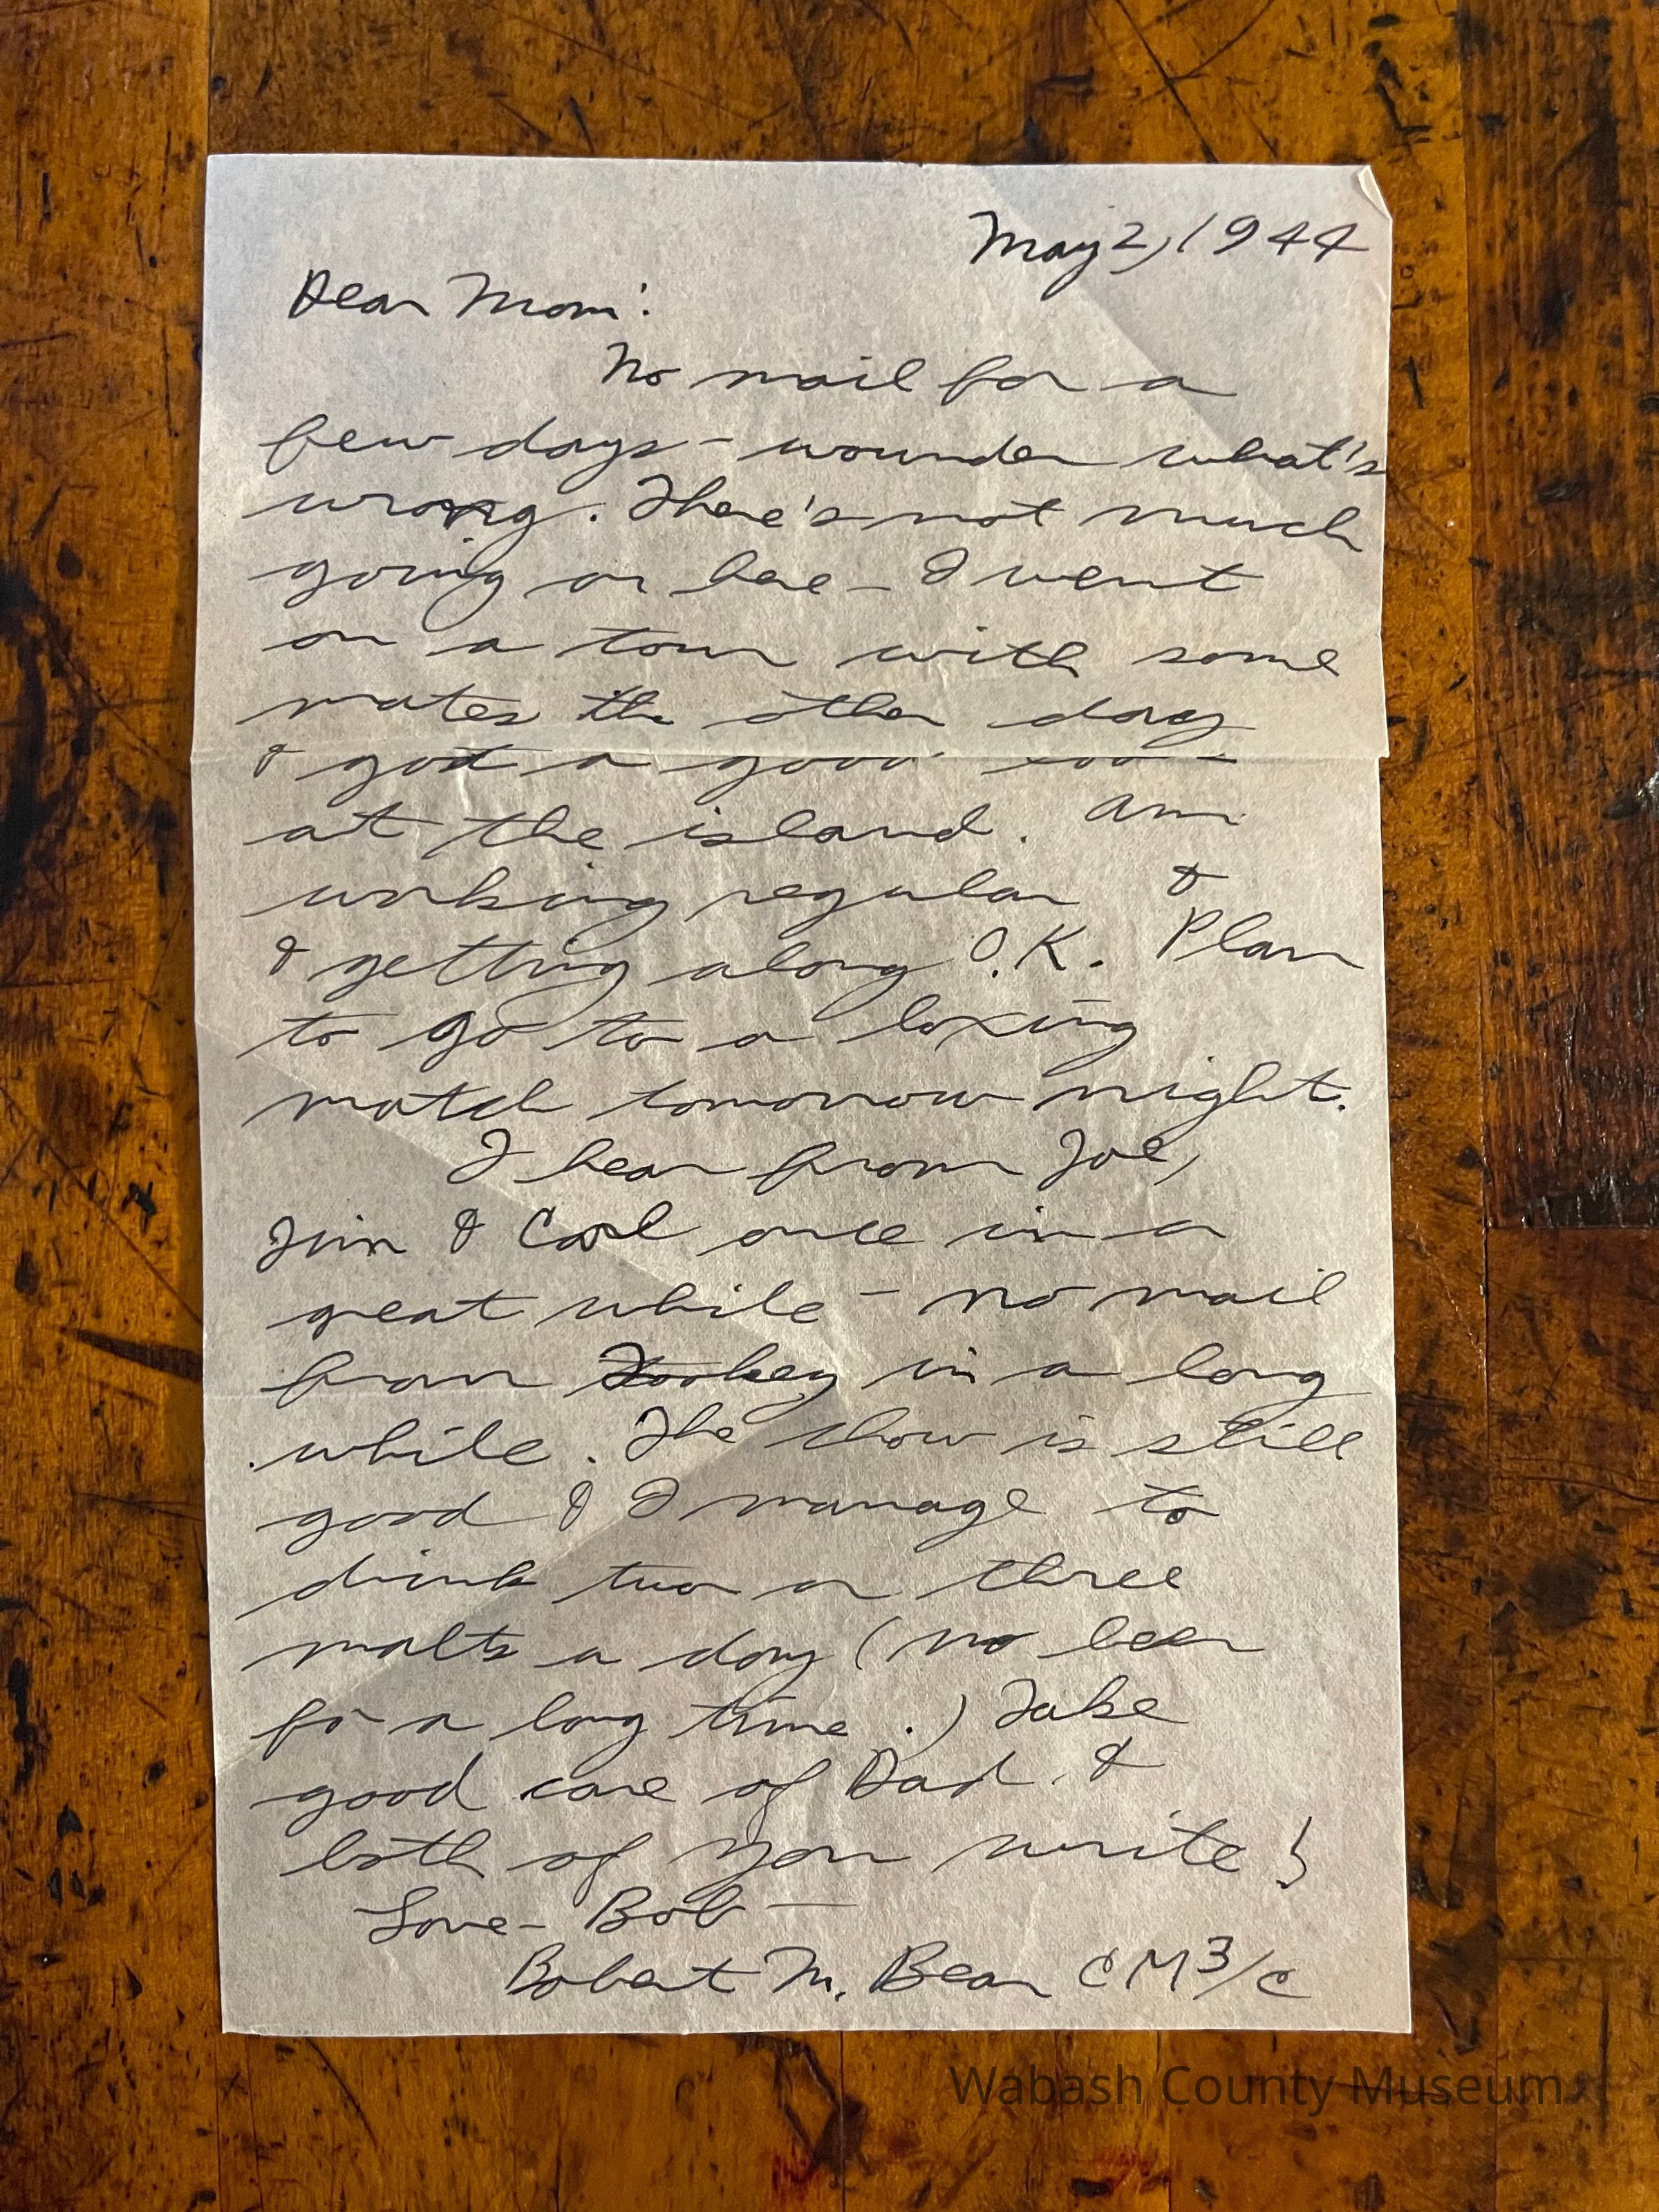 May 2, 1944
Dear Mom:
No mail for a
few days - wounder what's
wrong. There's not much
going on here - I went
on a tour with some
mates the other day
& got a good look
at the island. Am
working regular &
& getting along O.K. Plan
to go to a boxing
match tomorrow night.
I hear from Joe,
Jim & Carl once in a
great while - no mail
from in a long
while. The chow is still
good & I manage to
drink two or three
malts a day (no beer
for a long time.) Take
good care of Dad &
both of you write!
Love - Bob -
Robert M. Bear CM3/c
Wabash County Museum